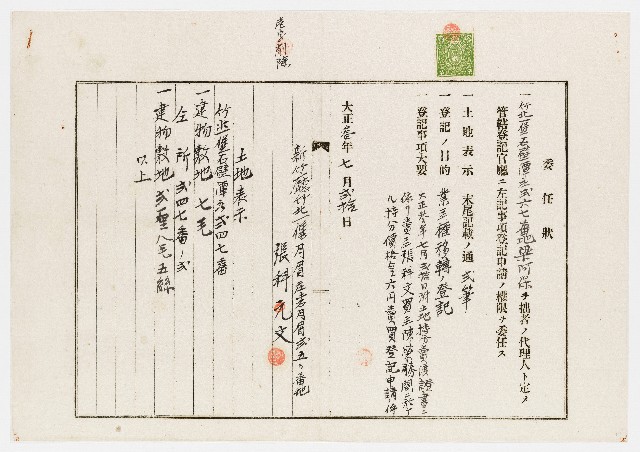 委任狀
一竹北一堡石壁潭庄弐六七番地梁阿保ヲ拙者ノ代理人ト定メ
管轄登記官廳ニ左記事項登記申請ノ權限ヲ委任ス
一土地表示 末尾記載ノ通 弐筆
一登記ノ目的 業主權移轉登記
一登記事項大要 大正叁年七月弐拾日附土地持分賣渡證書ニ
依リ賣主張科文買主陳榮
持分價格金六円賣買登記申請ノ件
大正叁年七月弐拾日
新竹廳竹北一堡月眉庄土名月眉弐五番地
張科文
土地表示
竹北一堡石壁潭庄弐四七番
一建物敷地 七毛
仝所弐四七番ノ弐
一建物敷地 弐厘八毛五絲
以上